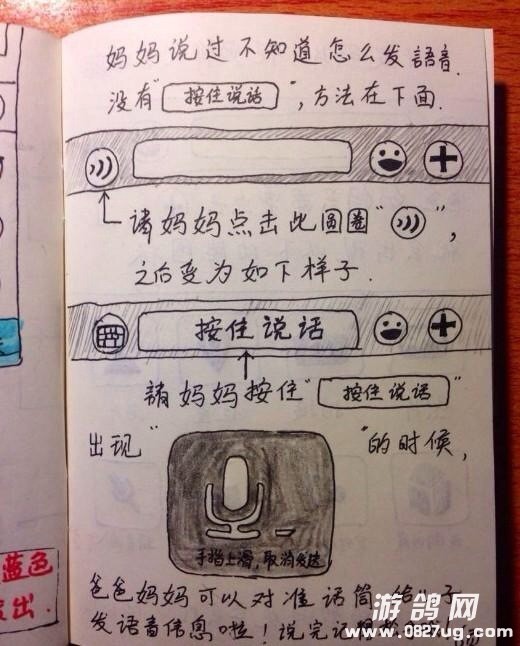 妈妈说过不知道怎么发語音.
没有"按住说话",方法在下面.
请妈妈点击此圆圈" ",
之后变为如下样子.
按住说话
請妈妈按住"按住说话"
出现" "的时候,
手指上滑,取消发送
爸爸妈妈可以对准话筒给
发语音信息啦!说完记得
蓝色
出.
游鸽网
www.0827ug.com